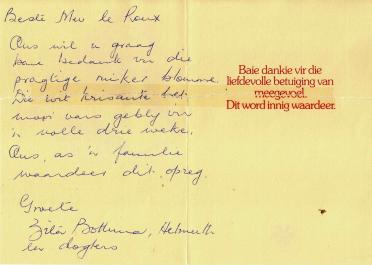 Beste Mev le Roux
Ons wil u graag
baie bedank vir die
pragtige ruiker blomme.
Die wit krisante het
mooi vars gebly vir
'n volle drie weke.
Ons, as 'n familie
waardeer dit opreg.
Groete
Bothma, Helmuth
en dogters
Baie dankie vir die
liefdevolle betuiging van
meegevoel.
Dit word innig waardeer.